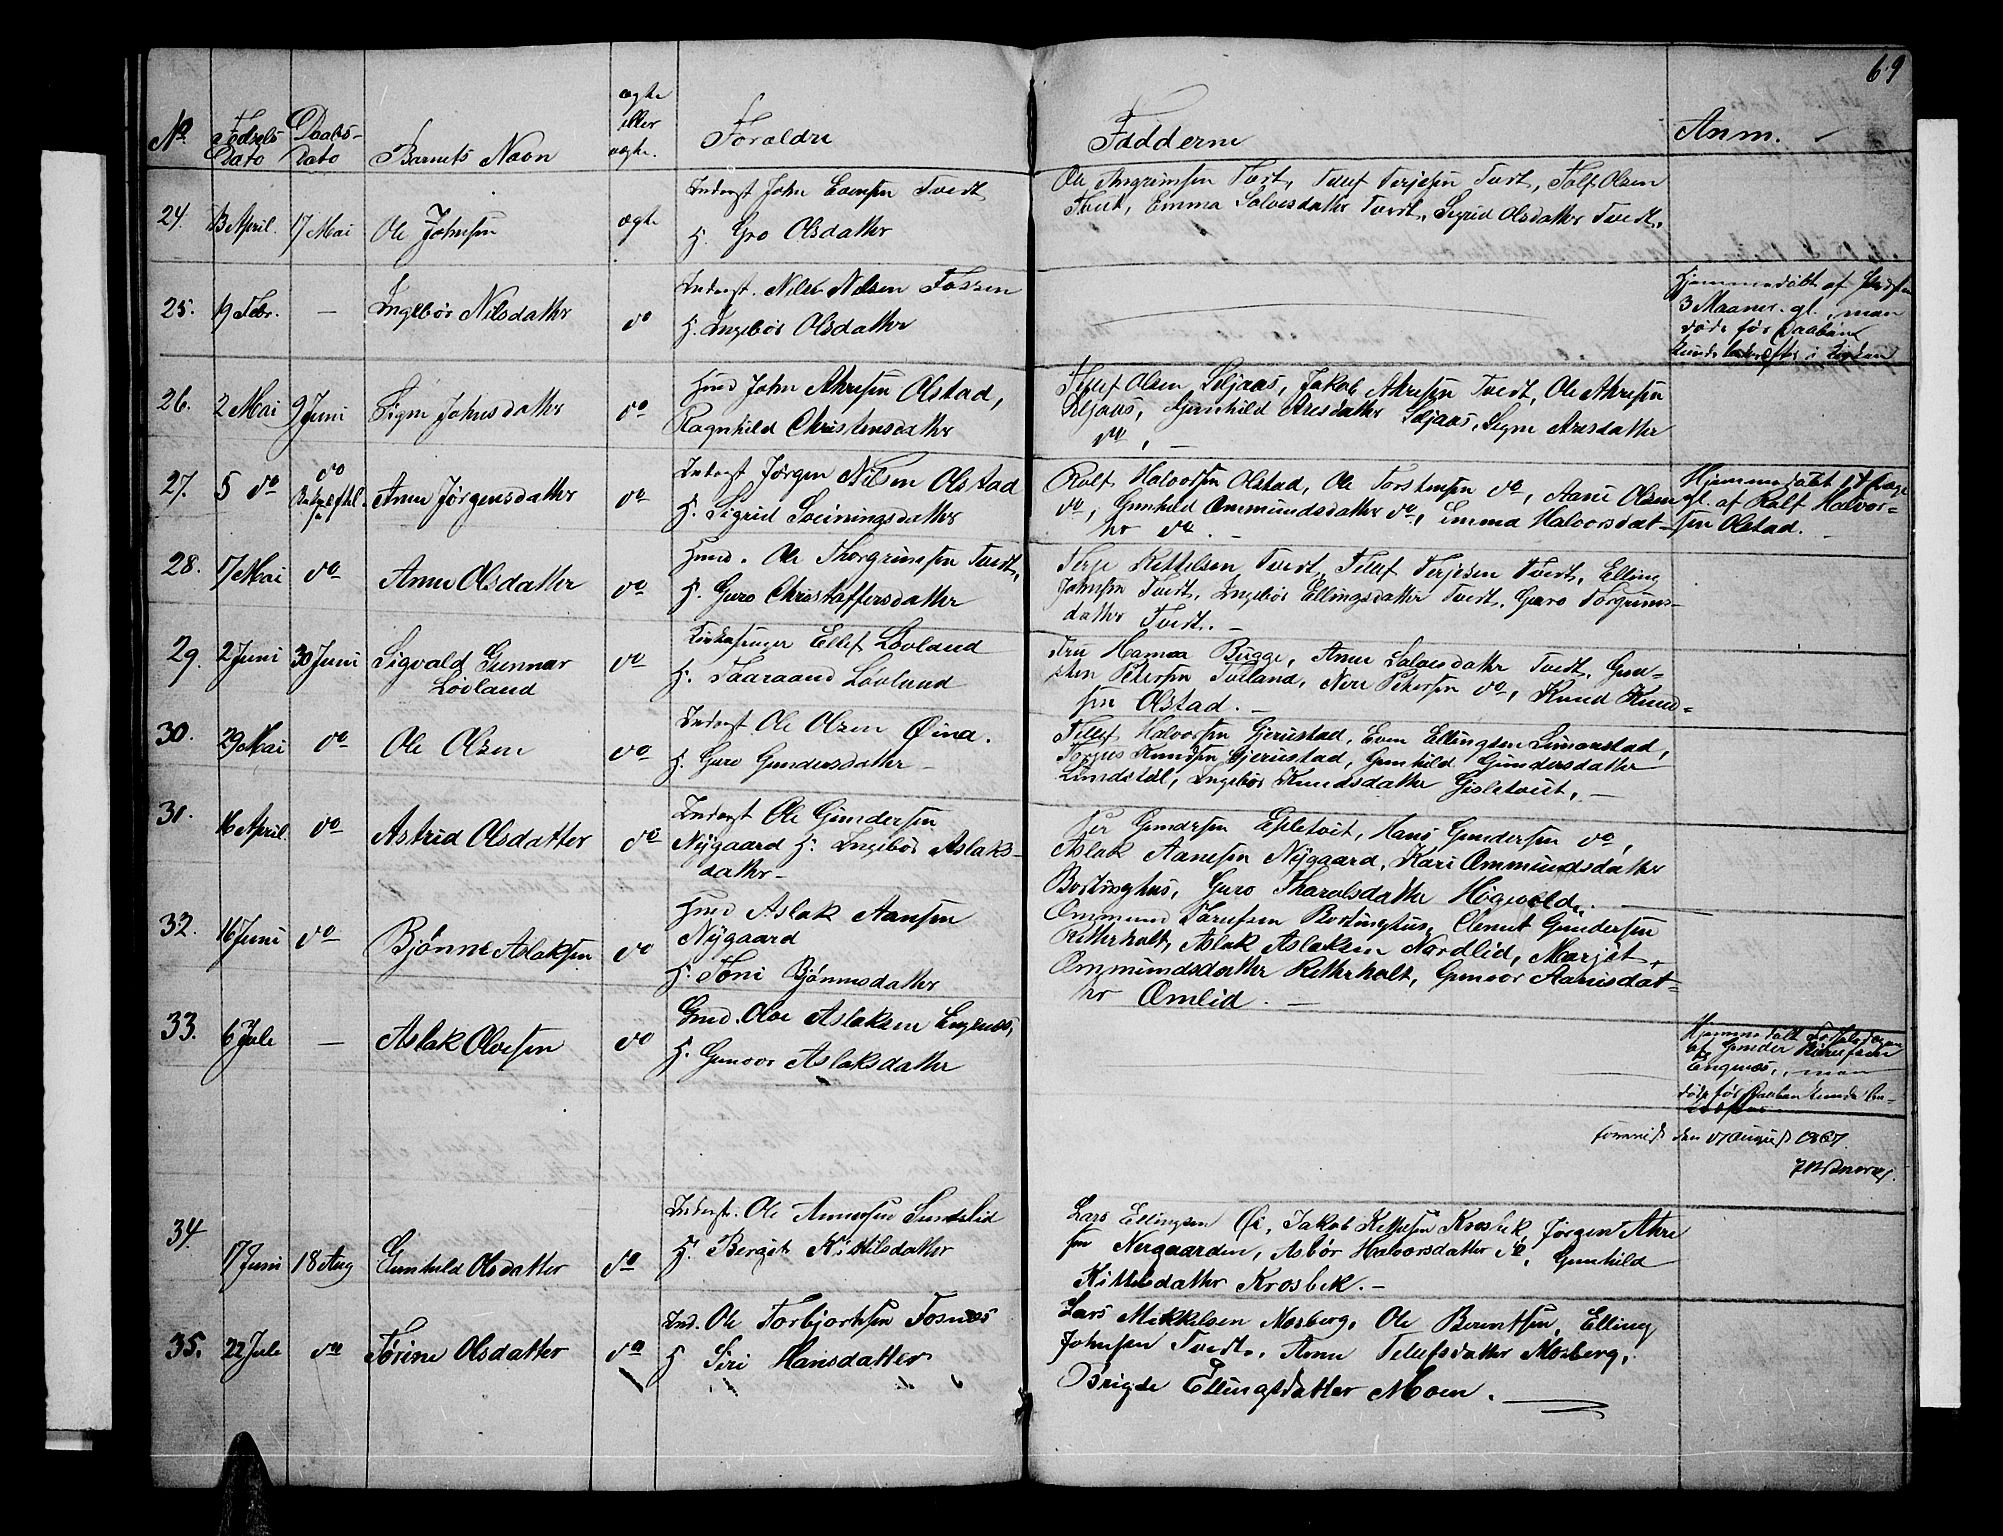 69
No Fødsels Dato Daabs-Dato Barnets Navn ægte eller uægte. Forældre Fadderne Anm.
24. 13 April. 17 Mai Ole Johnsen ægte Inderst John Evensen Tvedt
H. Gro Olsdatter
Ole Angrimsen Tvedt, Tellef Terjesen Tvedt, Rolf Olsen
Tvedt, Emma Salvesdatter Tvedt, Sigrid Olsdatter Tvedt.
25. 19 Febr. — Ingebör Nilsdatter do Inderst. Nils Nilsen Fossen
H. Ingebör Olsdatter
Hjemmedöbt af
3 Maaner. gl., man
döde för Daaben
kunde bekræftes i Kirken
26. 2 Mai 9 Juni Signe Johnsdatter do Huusmd John Akresen Olstad,
Ragnhild Christensdatter
Tellef Olsen Seljaas, Jakob Akresen Tvedt, Ole Akresen
Seljaas, Gunhild Aresdatter Seljaas, Signe Aresdatter
do, —
27. 5 do do Anne Jörgensdatter do Inderst Jörgen Nilsen Olstad
H. Sigrid Sveiningsdatter
Rolf Halvorsen Olstad, Ole Torstensen do, Aani Olsen
do, Gunhild Ommundsdatter do, Emma Halvorsdat-
ter do. —
Hjemmedöbt 14 Dage
gl. af Rolf Halvor-
sen Olstad. —
28. 17 Mai do Anne Olsdatter do Huusmd. Ole Thorgrimsen Tvedt,
H. Guro Christaffersdatter
Terje Kittelsen Tvedt, Tellef Terjesen Tvedt, Elling
Johnsen Tvedt, Ingebör Ellingsdatter Tvedt, Guro Torgrims-
datter Tvedt. —
29. 2 Juni 30 Juni Sigvald Gunnar
Lövland do Kirkesanger Ellef Lövland
H. Taaraand Lövland
Fru Hanna Bugge, Anne Salvesdatter Tvedt, Gun-
sten Petersen Toeland, Nere Petersen do, Knud Knud-
sen Olstad. —
30. 29 Mai do Ole Olsen do Inderst Ole Olsen Öina.
H. Guro Gundersdatter —
Tellef Halvorsen Gjerustad, Even Ellingsen Simonstad,
Torjus Knudsen Gjerustad, Gunhild Gundersdatter
Lundstöl, Ingebör Knudsdatter Gisletveit, —
31. 16 April. do Astrid Olsdatter do Inderst Ole Gundersen
Nygaard H. Ingebör Aslaks-
datter —
Per Gundersen Epletvet, Hans Gundersen do,
Aslak Aanesen Nygaard, Kari Ommundsdatter
Bortinghus, Guro Tharalsdatter Högevold. —
32. 16 Juni do Bjönne Aslaksen do Huusmd Aslak Aansen
Nygaard
H. Toni Bjönnesdatter
Ommund Tarufsen Bortinghus, Clemet Gundersen
Ritterholt, Aslak Aslaksen Nordlid, Marjöt
Ommundsdatter Retterholt, Gunvor Aanesdat-
ter Omlid. —
33. 6 Jule — Aslak Olvesen do Gmd. Olve Aslaksen Engenæs,
H. Gunvor Aslaksdatter
Hjemmedöbt Födselsdagen
af Gunder
Engenæs,, man
döde för Daaben kunde be-
kræftes
den 17 August 1867.
34. 17 Juni 18 Aug Gunhild Olsdatter do Inderst. Ole Annersen Sundslid
H. Bergit Kittilsdatter
Lars Ellingsen Öi, Jakob Kittelsen Krosbek, Jörgen Akre
sen Nergaarden, Asbör Halvorsdatter do, Gunhild
Kittelsdatter Krosbek. —
35. 22 Jule do Torine Olsdatter do Ind. Ole Torbjornsen Fosnæs
H Siri Hansdatter
Lars Mikkelsen Mosberg, Ole Berntsen, Elling
Johnsen Tvedt, Anne Tellefsdatter Mosberg,
Brigde Ellingsdatter Moen. —